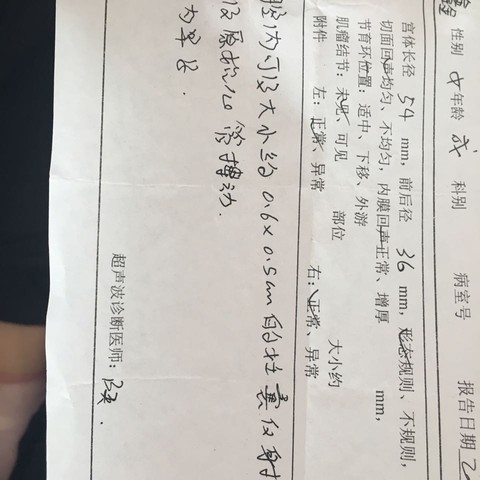 性别 女 年龄 成 科别 病室号 报告日期
宫体长径 54 mm, 前后径 36 mm, 形态规则、不规则,
切面回声均匀、不均匀, 内膜回声正常、增厚 mm,
节育环位置: 适中、下移、外游
肌瘤结节: 未见、可见 部位 大小约
附件 左: 正常、异常 右: 正常、异常
腔内可及大小约 0.6×0.5cm 的妊囊仅射
及原始心管搏动.
为早孕.
超声波诊断医师: